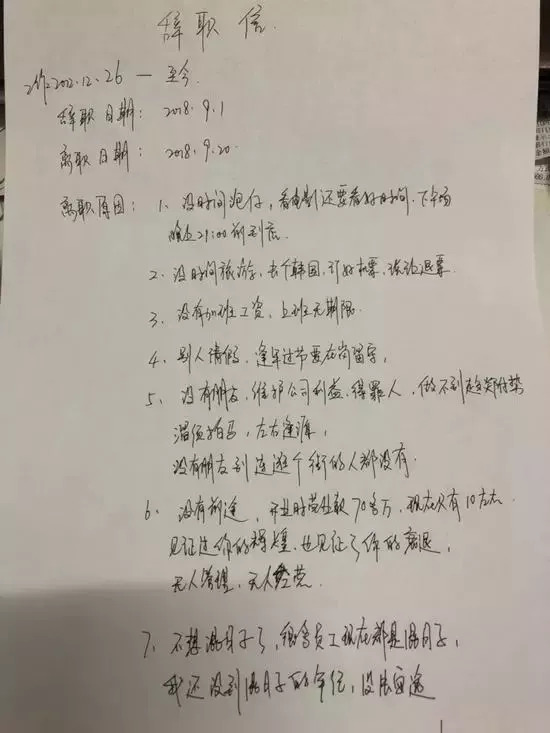 辞职信
工作:2012.12.26 — 至今.
辞职日期: 2018.9.1
离职日期: 2018.9.20.
离职原因: 1、没时间泡仔,看电影还要看好时间.下午场
晚上21:00前到店.
2、没时间旅游,去个韩国,订好机票,被迫退票.
3、没有加班工资,上班无期限.
4、别人请假,逢年过节要在岗留守,
5、没有朋友,维护公司利益,得罪人,做不到趋炎附势
溜须拍马,左右逢源,
没有朋友到连逛个街的人都没有.
6、没有前途,开业时营业款70多万,现在只有10左右.
见证过你的辉煌,也见证了你的衰退,
无人管理,无人经营.
7、不想混日子了,很多员工现在都是混日子,
我还没到混日子的年纪,没钱